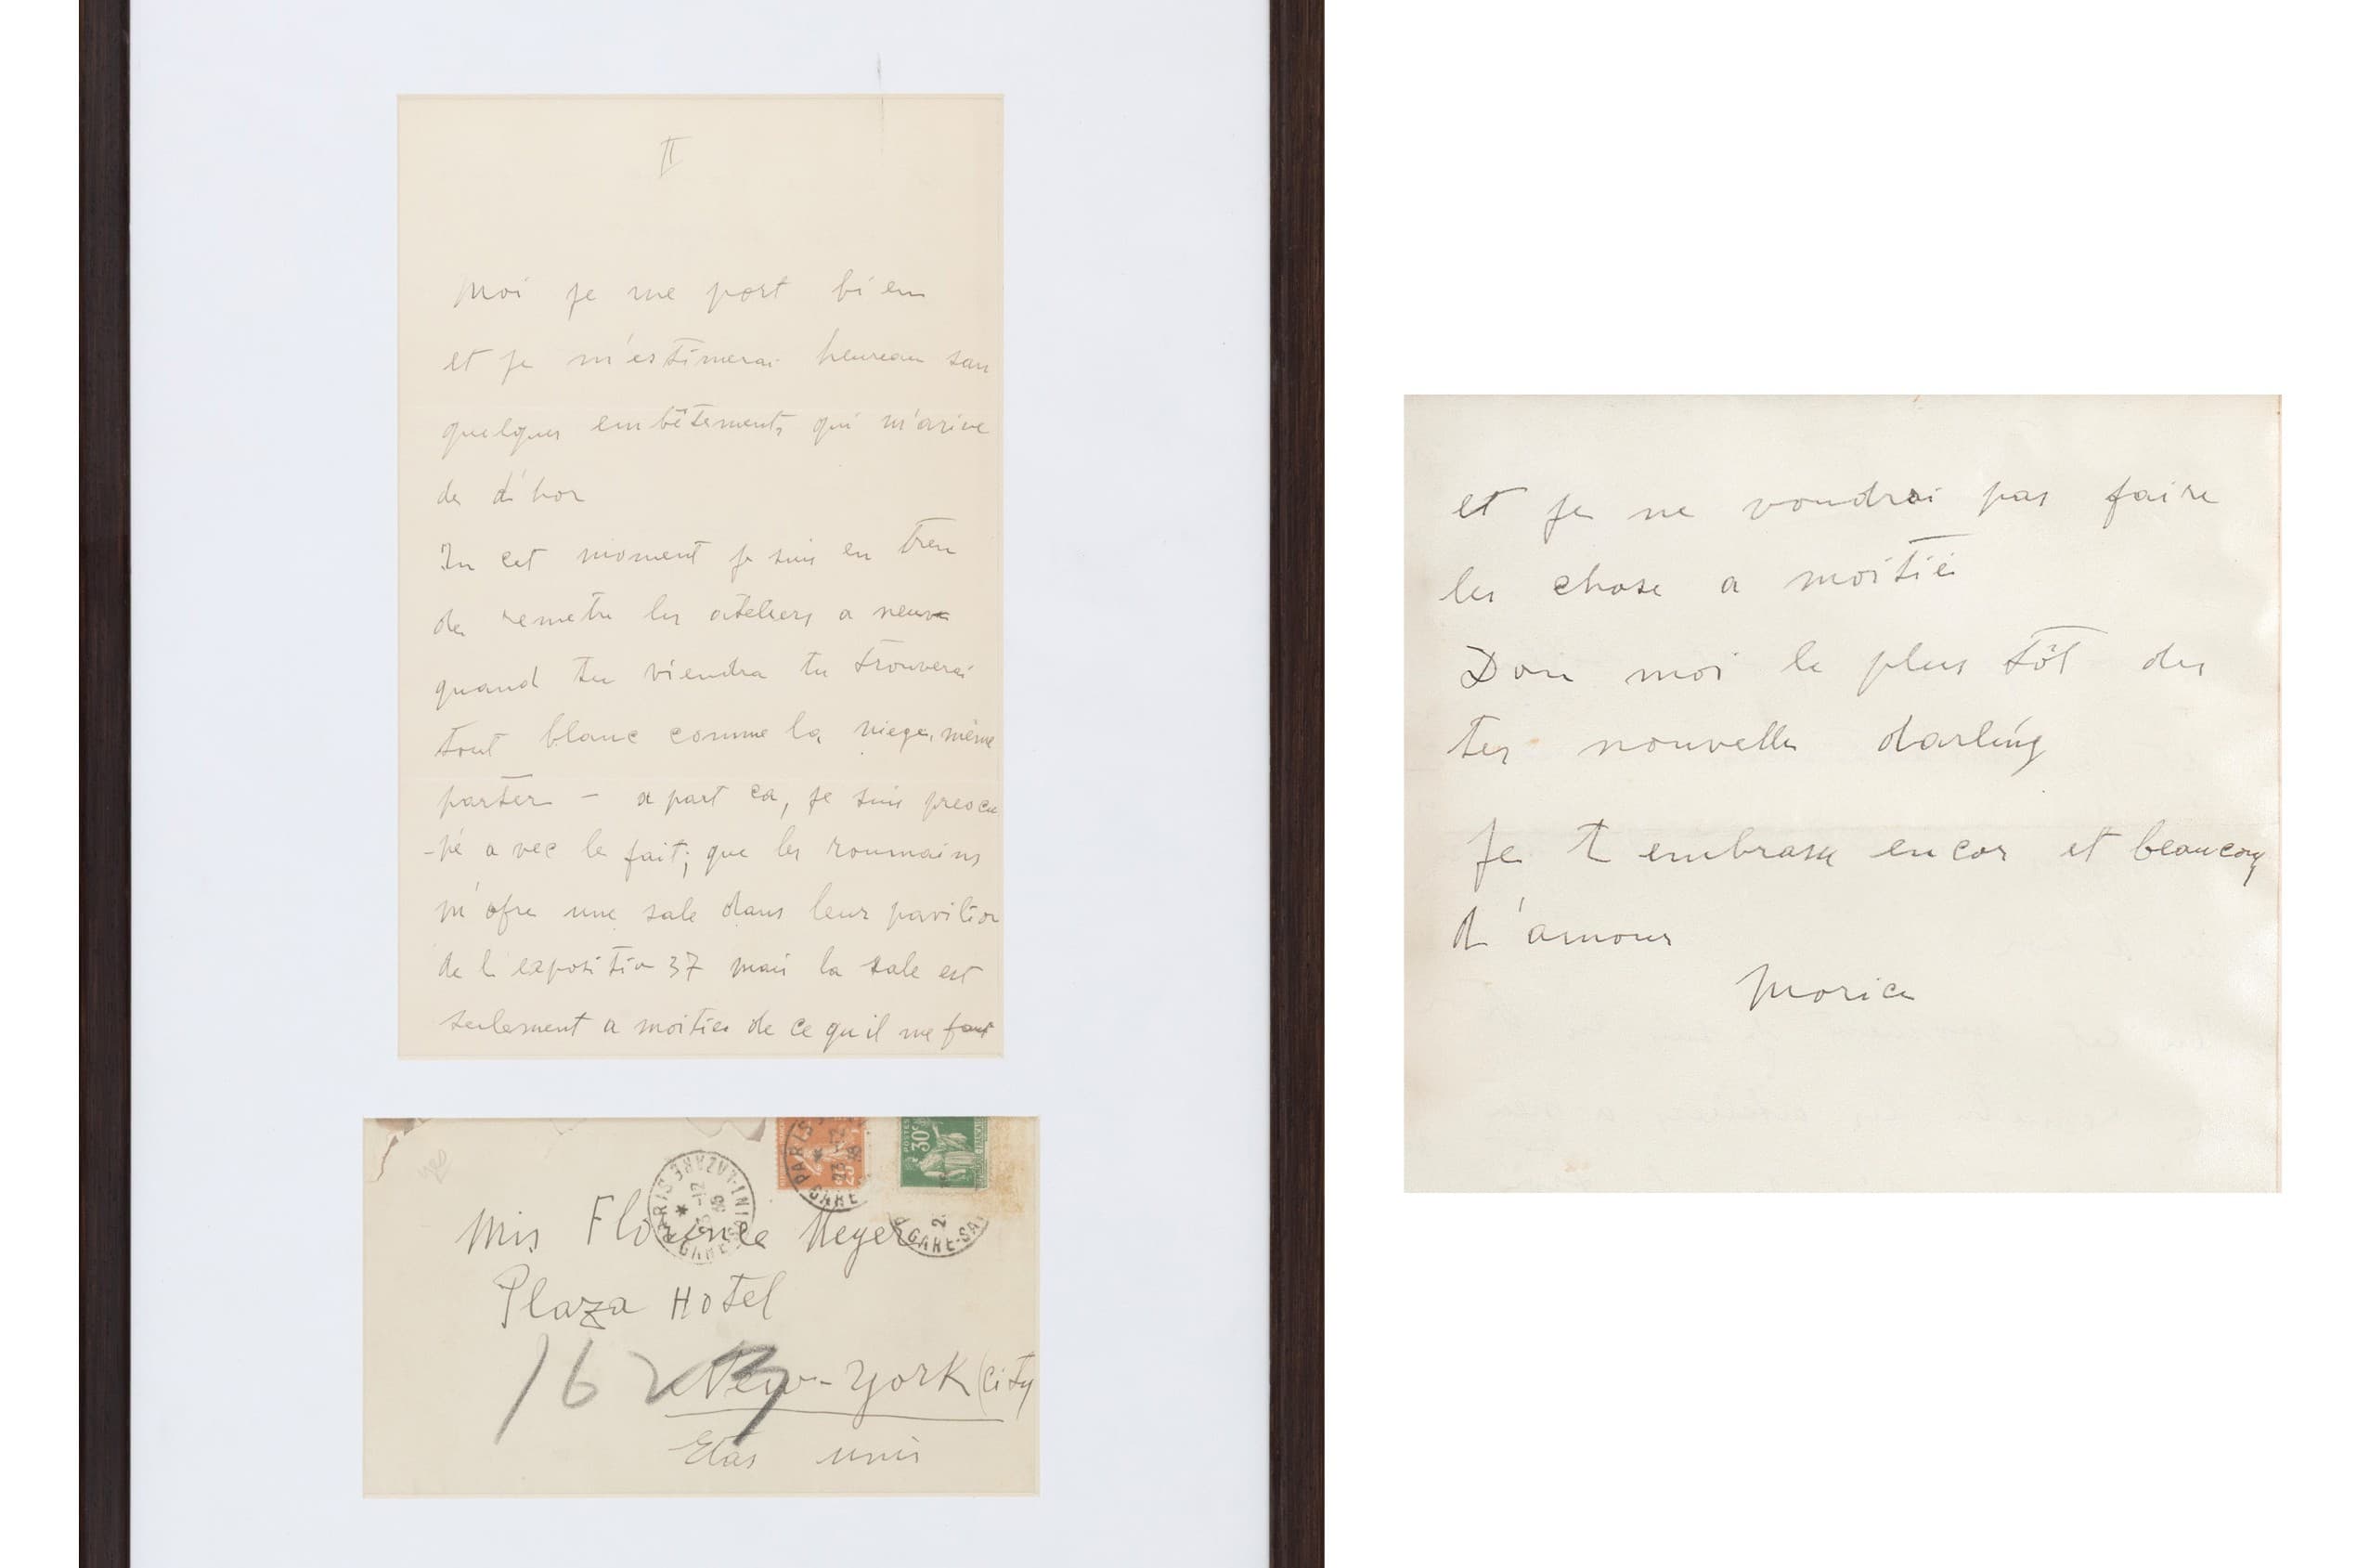 II
Moi je me port bien
et je m'estimerai heureau san
quelques embêtements qui m'arive
de dihor
In cet moment je suis en tren
de remetre les ateliers a neuve
quand tu viendra tu trouverai
tout blanc comme la niege, même
parter – a part ca, je suis preocu
-pé avec le fait; que les roumains
m'ofre une sale dans leur pavilion
de l'exposition 37 mais la sale est
seulement a moitiée de ce qu'il me faut
PARIS GARE SAINT-LAZARE
PARIS
GARE
25c
POSTES
30c
GARE-SA
Mis Florence Meyer
Plaza Hotel
162
New-York (City
Etas unis
et je ne voudrai pas faire
les chose a moitiée
Don moi le plus tôt des
tes nouvelle darling
Je t'embrasse encor et beaucoup
d'amour
Morice